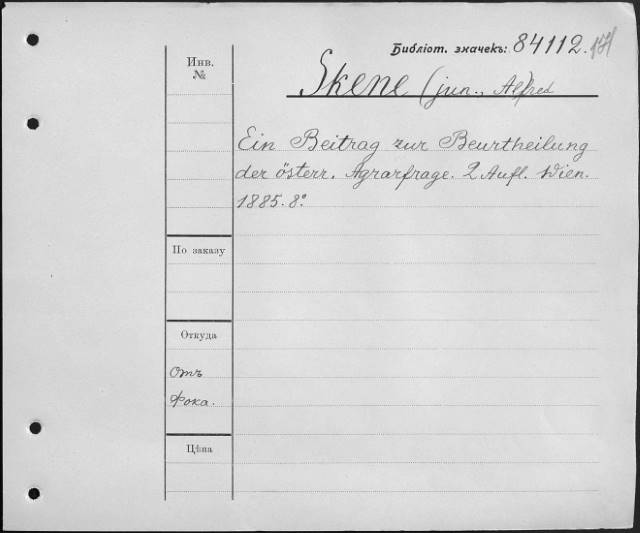 Библіот. значекъ: 84112.
Инв.
№
Skene (jun., Alfred
Ein Beitrag zur Beurtheilung
der österr. Agrarfrage. 2 Aufl. Wien.
1885. 8°
По заказу
Откуда
Отъ
Фока.
Цѣна